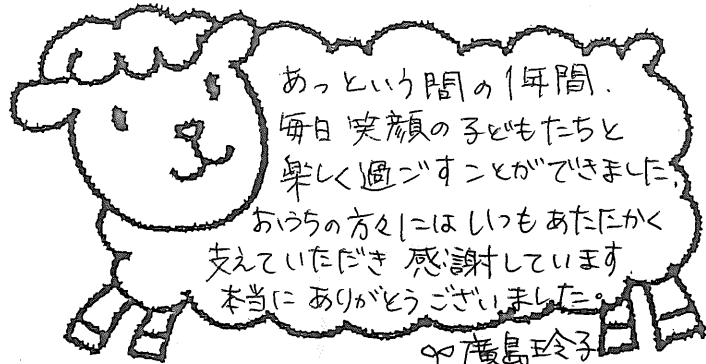 あっという間の1年間.
毎日笑顔の子どもたちと
楽しく過ごすことができました.
おうちの方々にはいつもあたたかく
支えていただき 感謝しています.
本当にありがとうございました。
廣島玲子